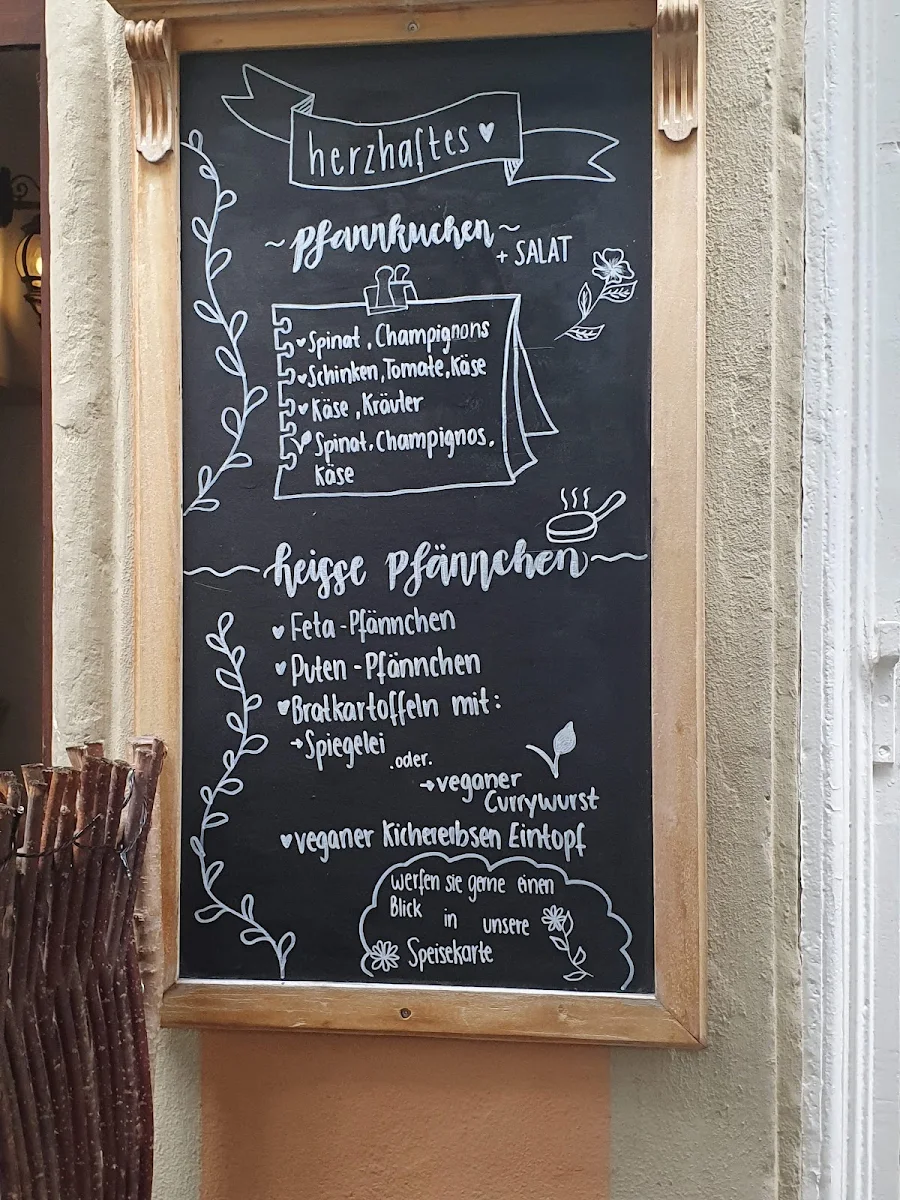 herzhaftes ♥
~ Pfannkuchen ~
+ SALAT
♥ Spinat, Champignons
♥ Schinken, Tomate, Käse
♥ Käse, Kräuter
Spinat, Champignos,
Käse
heisse Pfännchen
♥ Feta-Pfännchen
♥ Puten-Pfännchen
♥ Bratkartoffeln mit:
→ Spiegelei
.oder.
→ veganer
Currywurst
♥ veganer Kichererbsen Eintopf
werfen sie gerne einen
Blick in unsere
Speisekarte